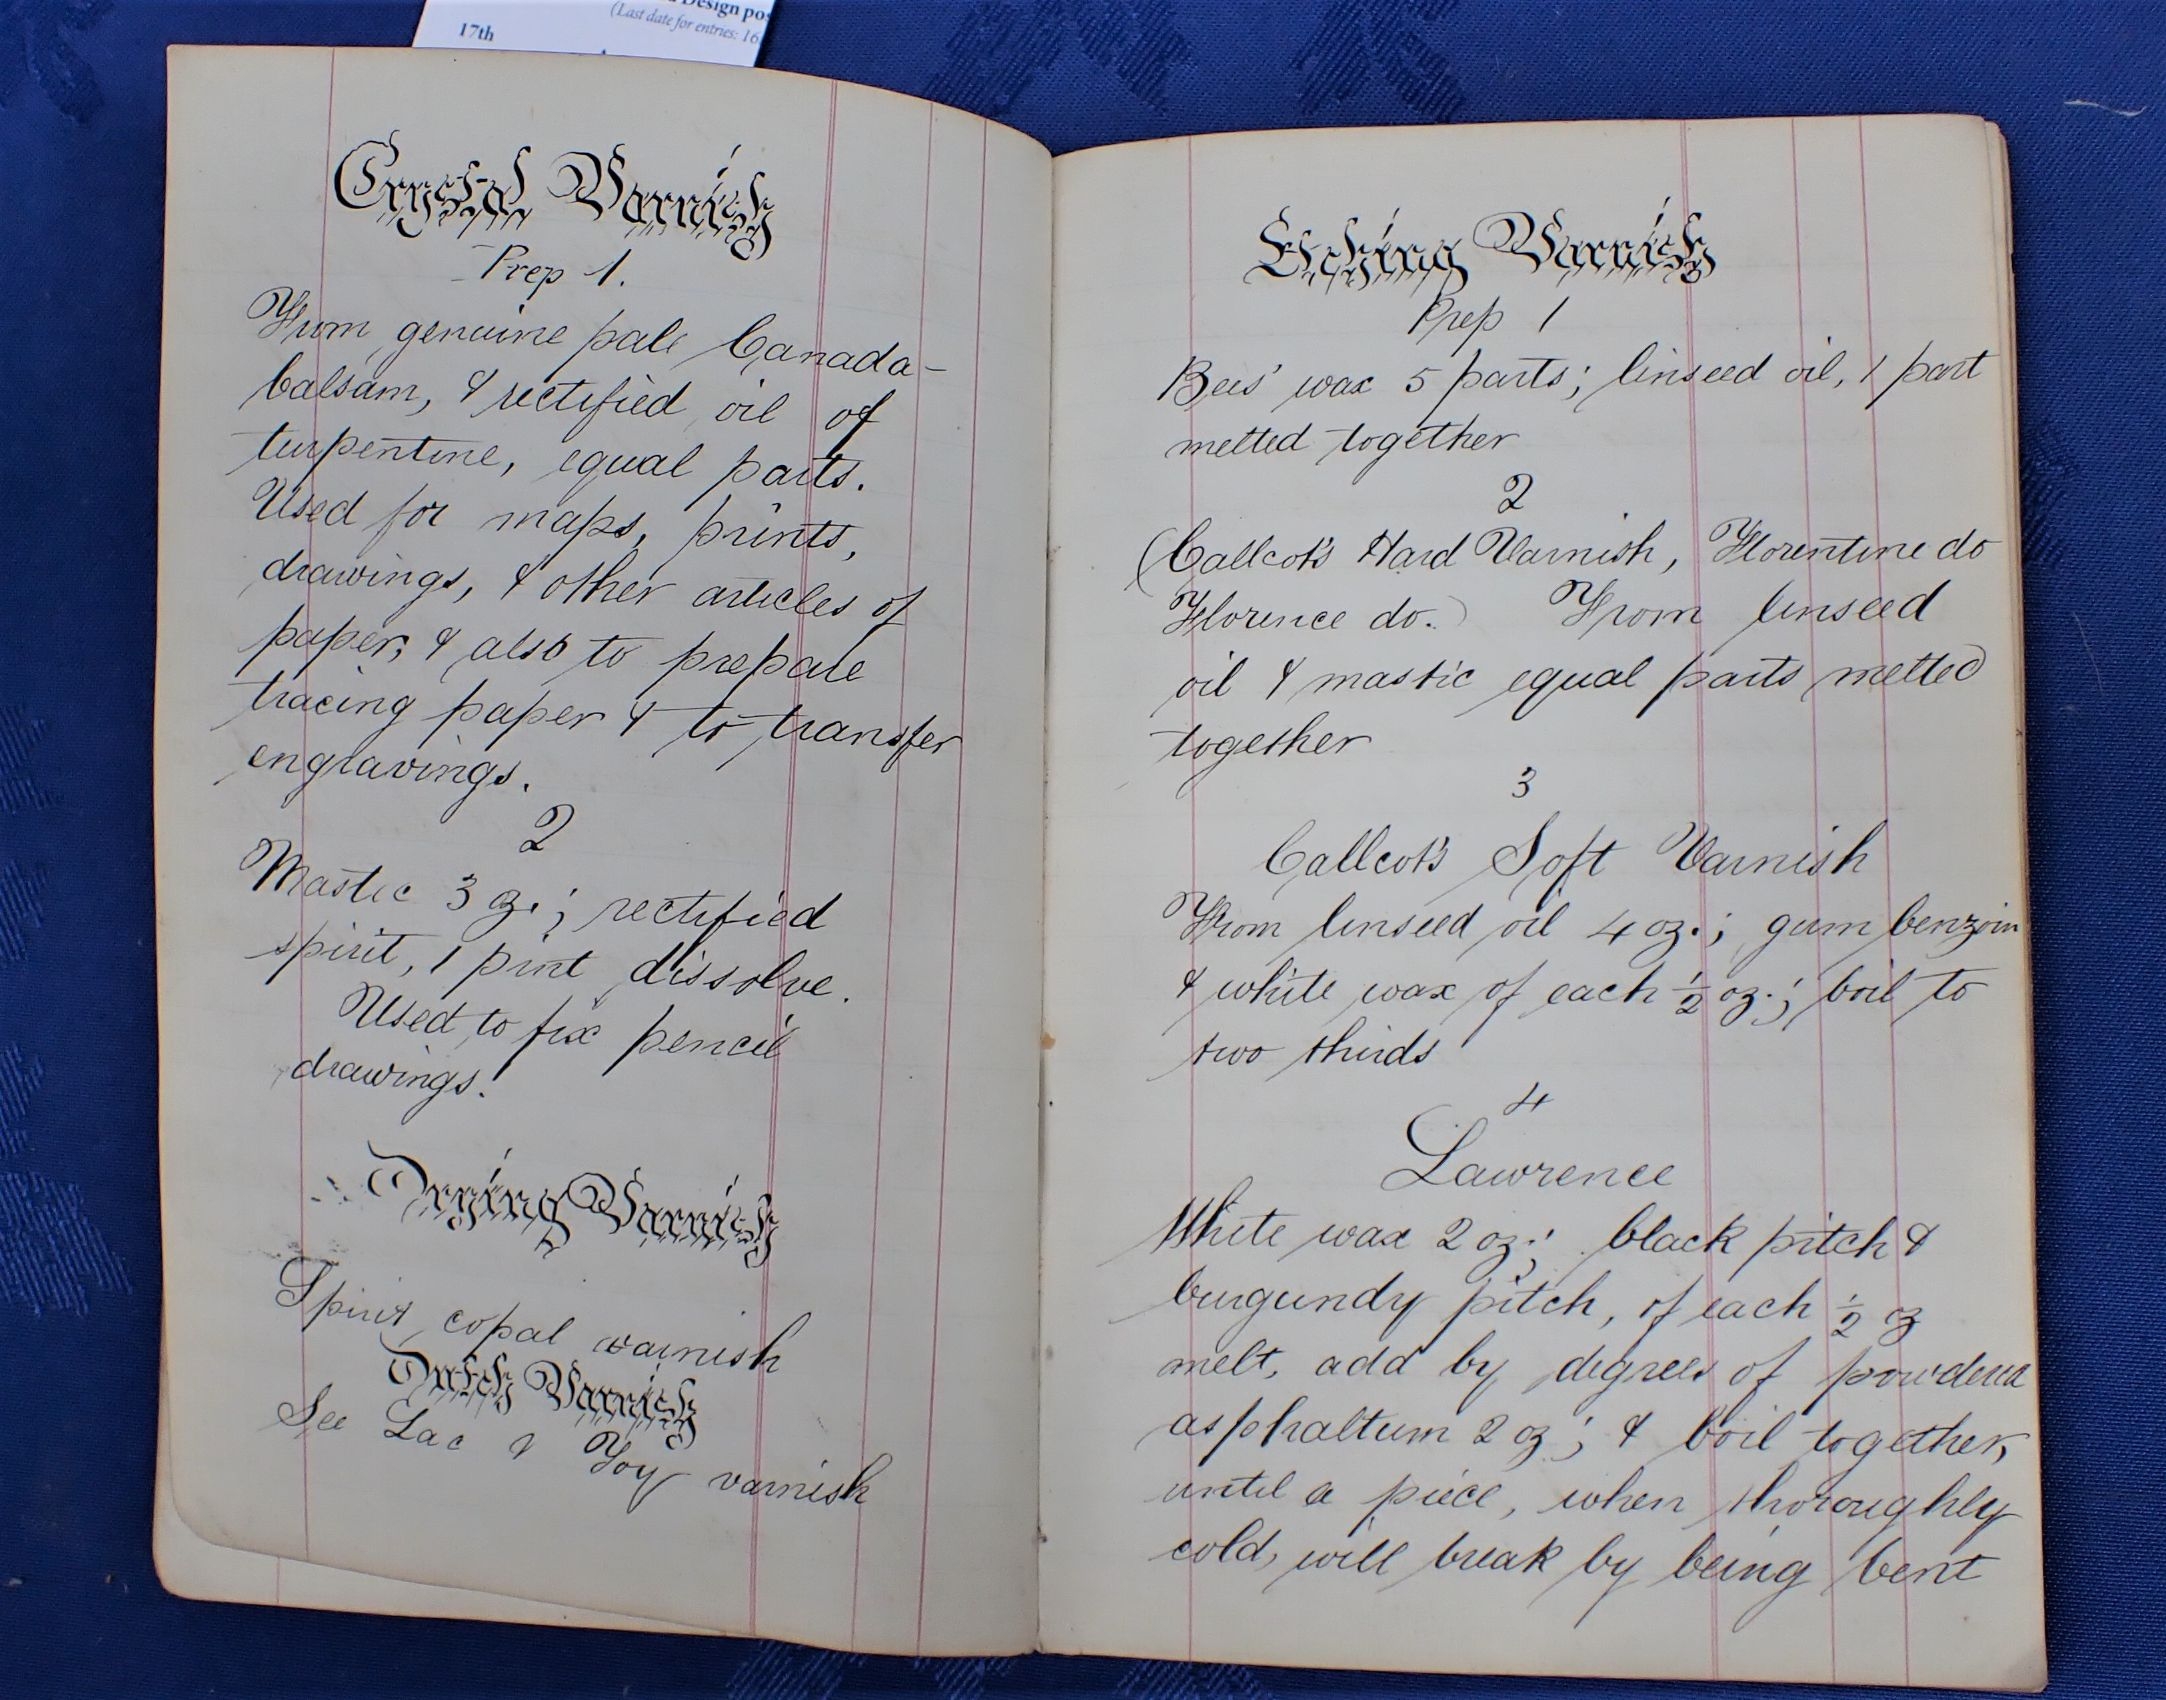 Design pos
(Last date for entries: 16
17th
Crystal Varnish
Prep 1.
From genuine pale Canada-
balsam, & rectified oil of
turpentine, equal parts.
Used for maps, prints,
drawings, & other articles of
paper, & also to prepare
tracing paper & to transfer
engravings.
2
Mastic 3 oz.; rectified
spirit, 1 pint dissolve.
Used to fix pencil
drawings.
Drying Varnish
Spirit copal varnish
Dutch Varnish
See Lac & Toy varnish
Etching Varnish
Prep 1
Bees' wax 5 parts; linseed oil, 1 part
melted together
2
(Callcot's Hard Varnish, Florentine do
Florence do.) From linseed
oil & mastic equal parts melted
together
3
Callcot's Soft Varnish
From linseed oil 4 oz.; gum benzoin
& white wax of each ½ oz.; boil to
two thirds
4
Lawrence
White wax 2 oz.; black pitch &
burgundy pitch, of each ½ oz
melt, add by degrees of powdered
asphaltum 2 oz; & boil together,
until a piece, when thoroughly
cold, will break by being bent